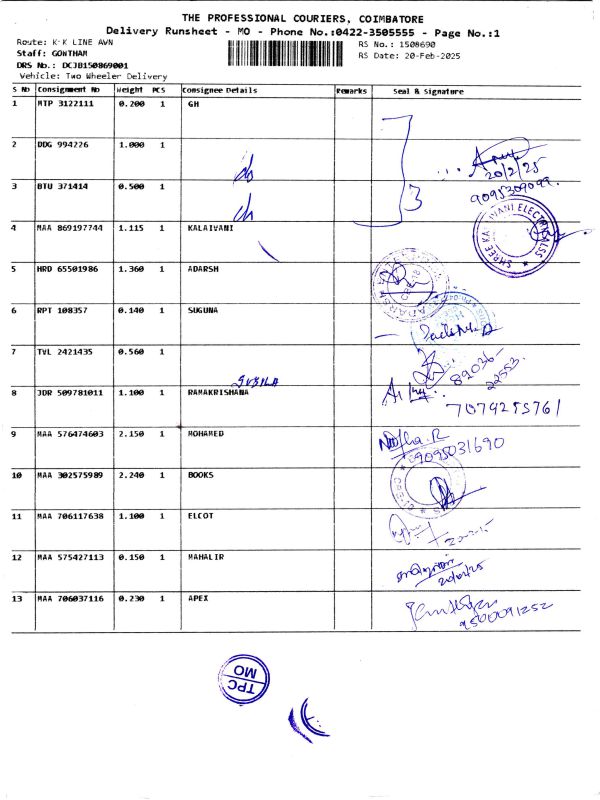 THE PROFESSIONAL COURIERS, COIMBATORE
Delivery Runsheet - MO - Phone No.:0422-3505555 - Page No.:1
Route: K-K LINE AWN
RS No.: 1508690
Staff: GONTHAM
RS Date: 20-Feb-2025
DRS No.: DCJB150869001
Vehicle: Two Wheeler Delivery
S No Consignment No Weight PCS Consignee Details Remarks Seal & Signature
1 MTP 3122111 0.200 1 GH
2 DDG 994226 1.000 1
20/2/25
3 BTU 371414 0.500 1 3
9095309099
4 MAA 869197744 1.115 1 KALAIVANI
5 HRD 65501986 1.360 1 ADARSH
6 RPT 108357 0.140 1 SUGUNA
7 TVL 2421435 0.560 1
SUSILA
8 JDR 509781011 1.100 1 RAMAKRISHANA
7074255761
9 MAA 576474603 2.150 1 MOHAMED
9095031690
10 MAA 302575989 2.240 1 BOOKS
11 MAA 706117638 1.100 1 ELCOT
12 MAA 575427113 0.150 1 MAHALIR
20/02/25
13 MAA 706037116 0.230 1 APEX
9500091252
TPC
MO